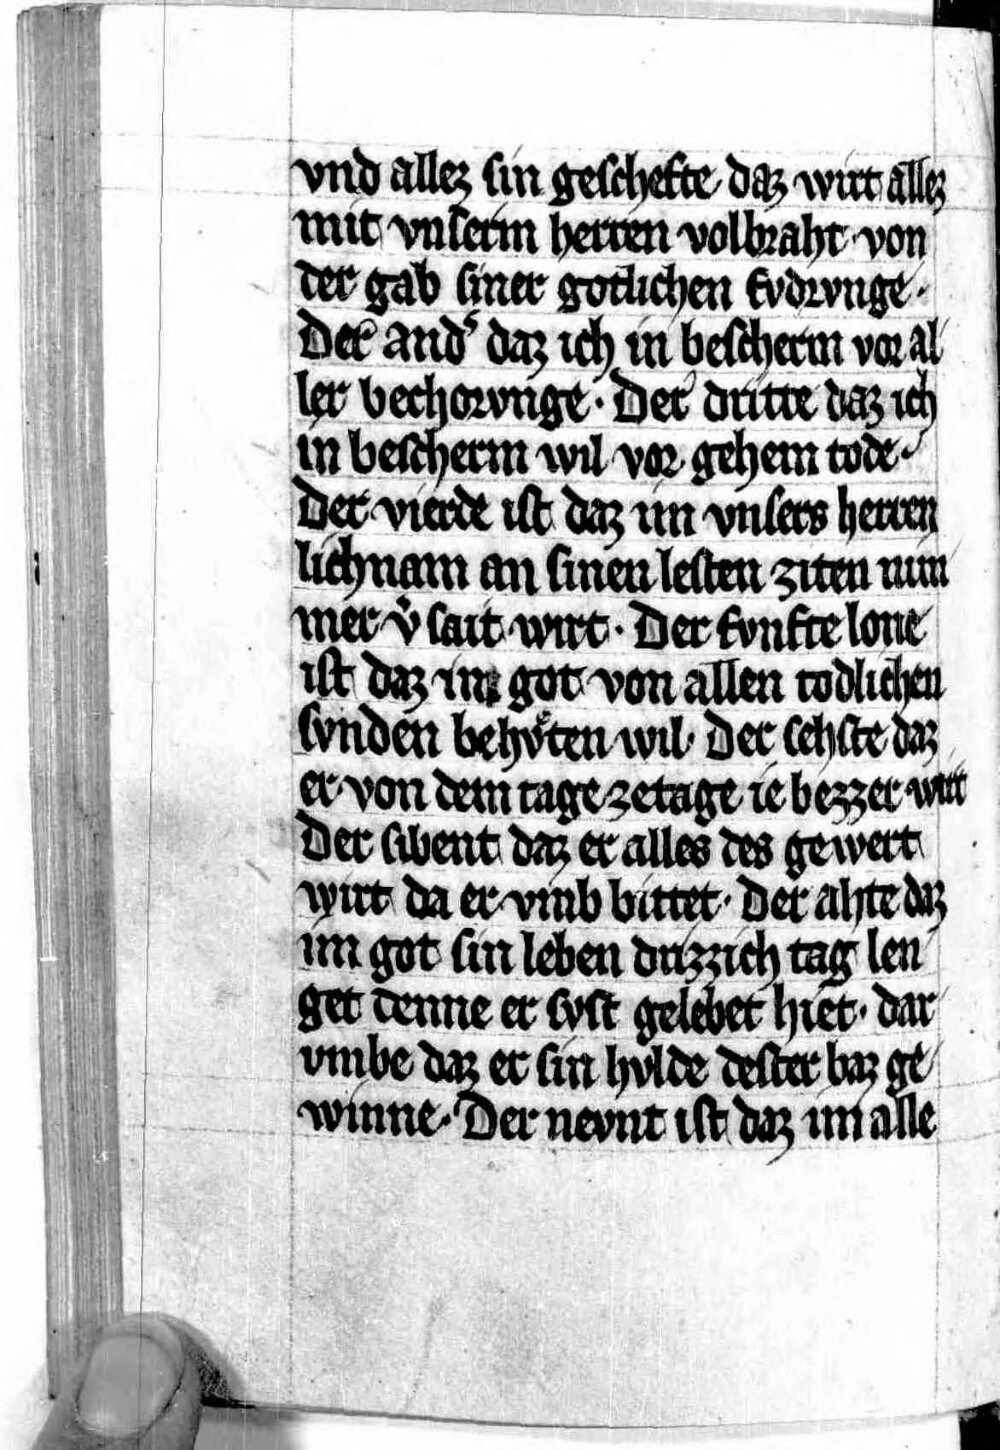 vnd allez sin geschefte daz wirt allez
mit vnserm herren volbraht · von
der gab siner gotlichen fvdrvnge ·
Der and͛ daz ich in bescherm vor al
ler bechorvnge · Der dritte daz ich
in bescherm wil vor gehem tode ·
Der vierde ist daz im vnsers herren
lichnam an sinen lesten ziten nim
mer v͛sait wirt · Der fvnfte lone
ist daz in got von allen todlichen
svnden behvͤten wil · Der sehste daz
er von dem tage ze tage ie bezzer wirt
Der sibent daz er alles des gewert
wirt da er vmb bittet · Der ahte daz
im got sin leben drizzich tag len
get denne er svst gelebet hiet · dar
vmbe daz er sin hvlde dester baz ge
winne · Der nevnt ist daz im alle